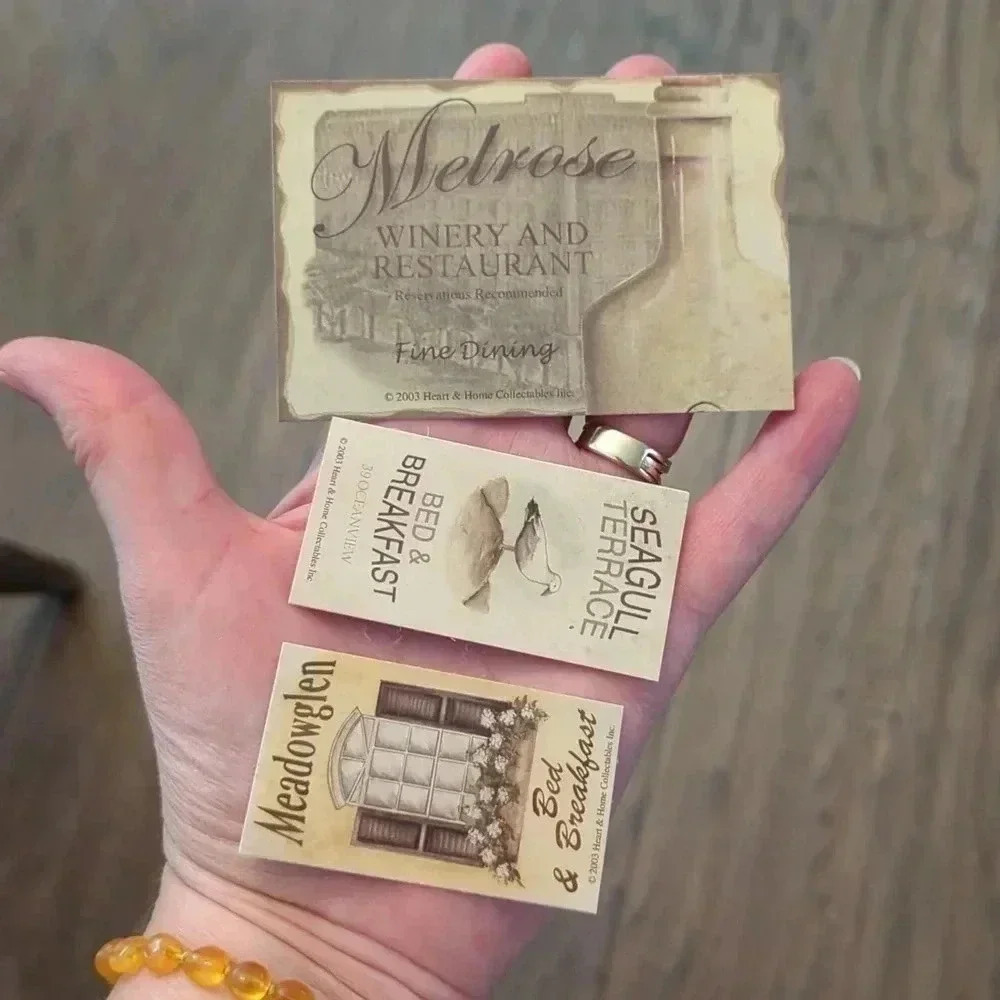 the Melrose
WINERY AND
RESTAURANT
Reservations Recommended
Fine Dining
© 2003 Heart & Home Collectables Inc.
SEAGULL
TERRACE
BED &
BREAKFAST
39 OCEANVIEW
© 2003 Heart & Home Collectables Inc
Meadowglen
Bed
& Breakfast
© 2003 Heart & Home Collectables Inc.